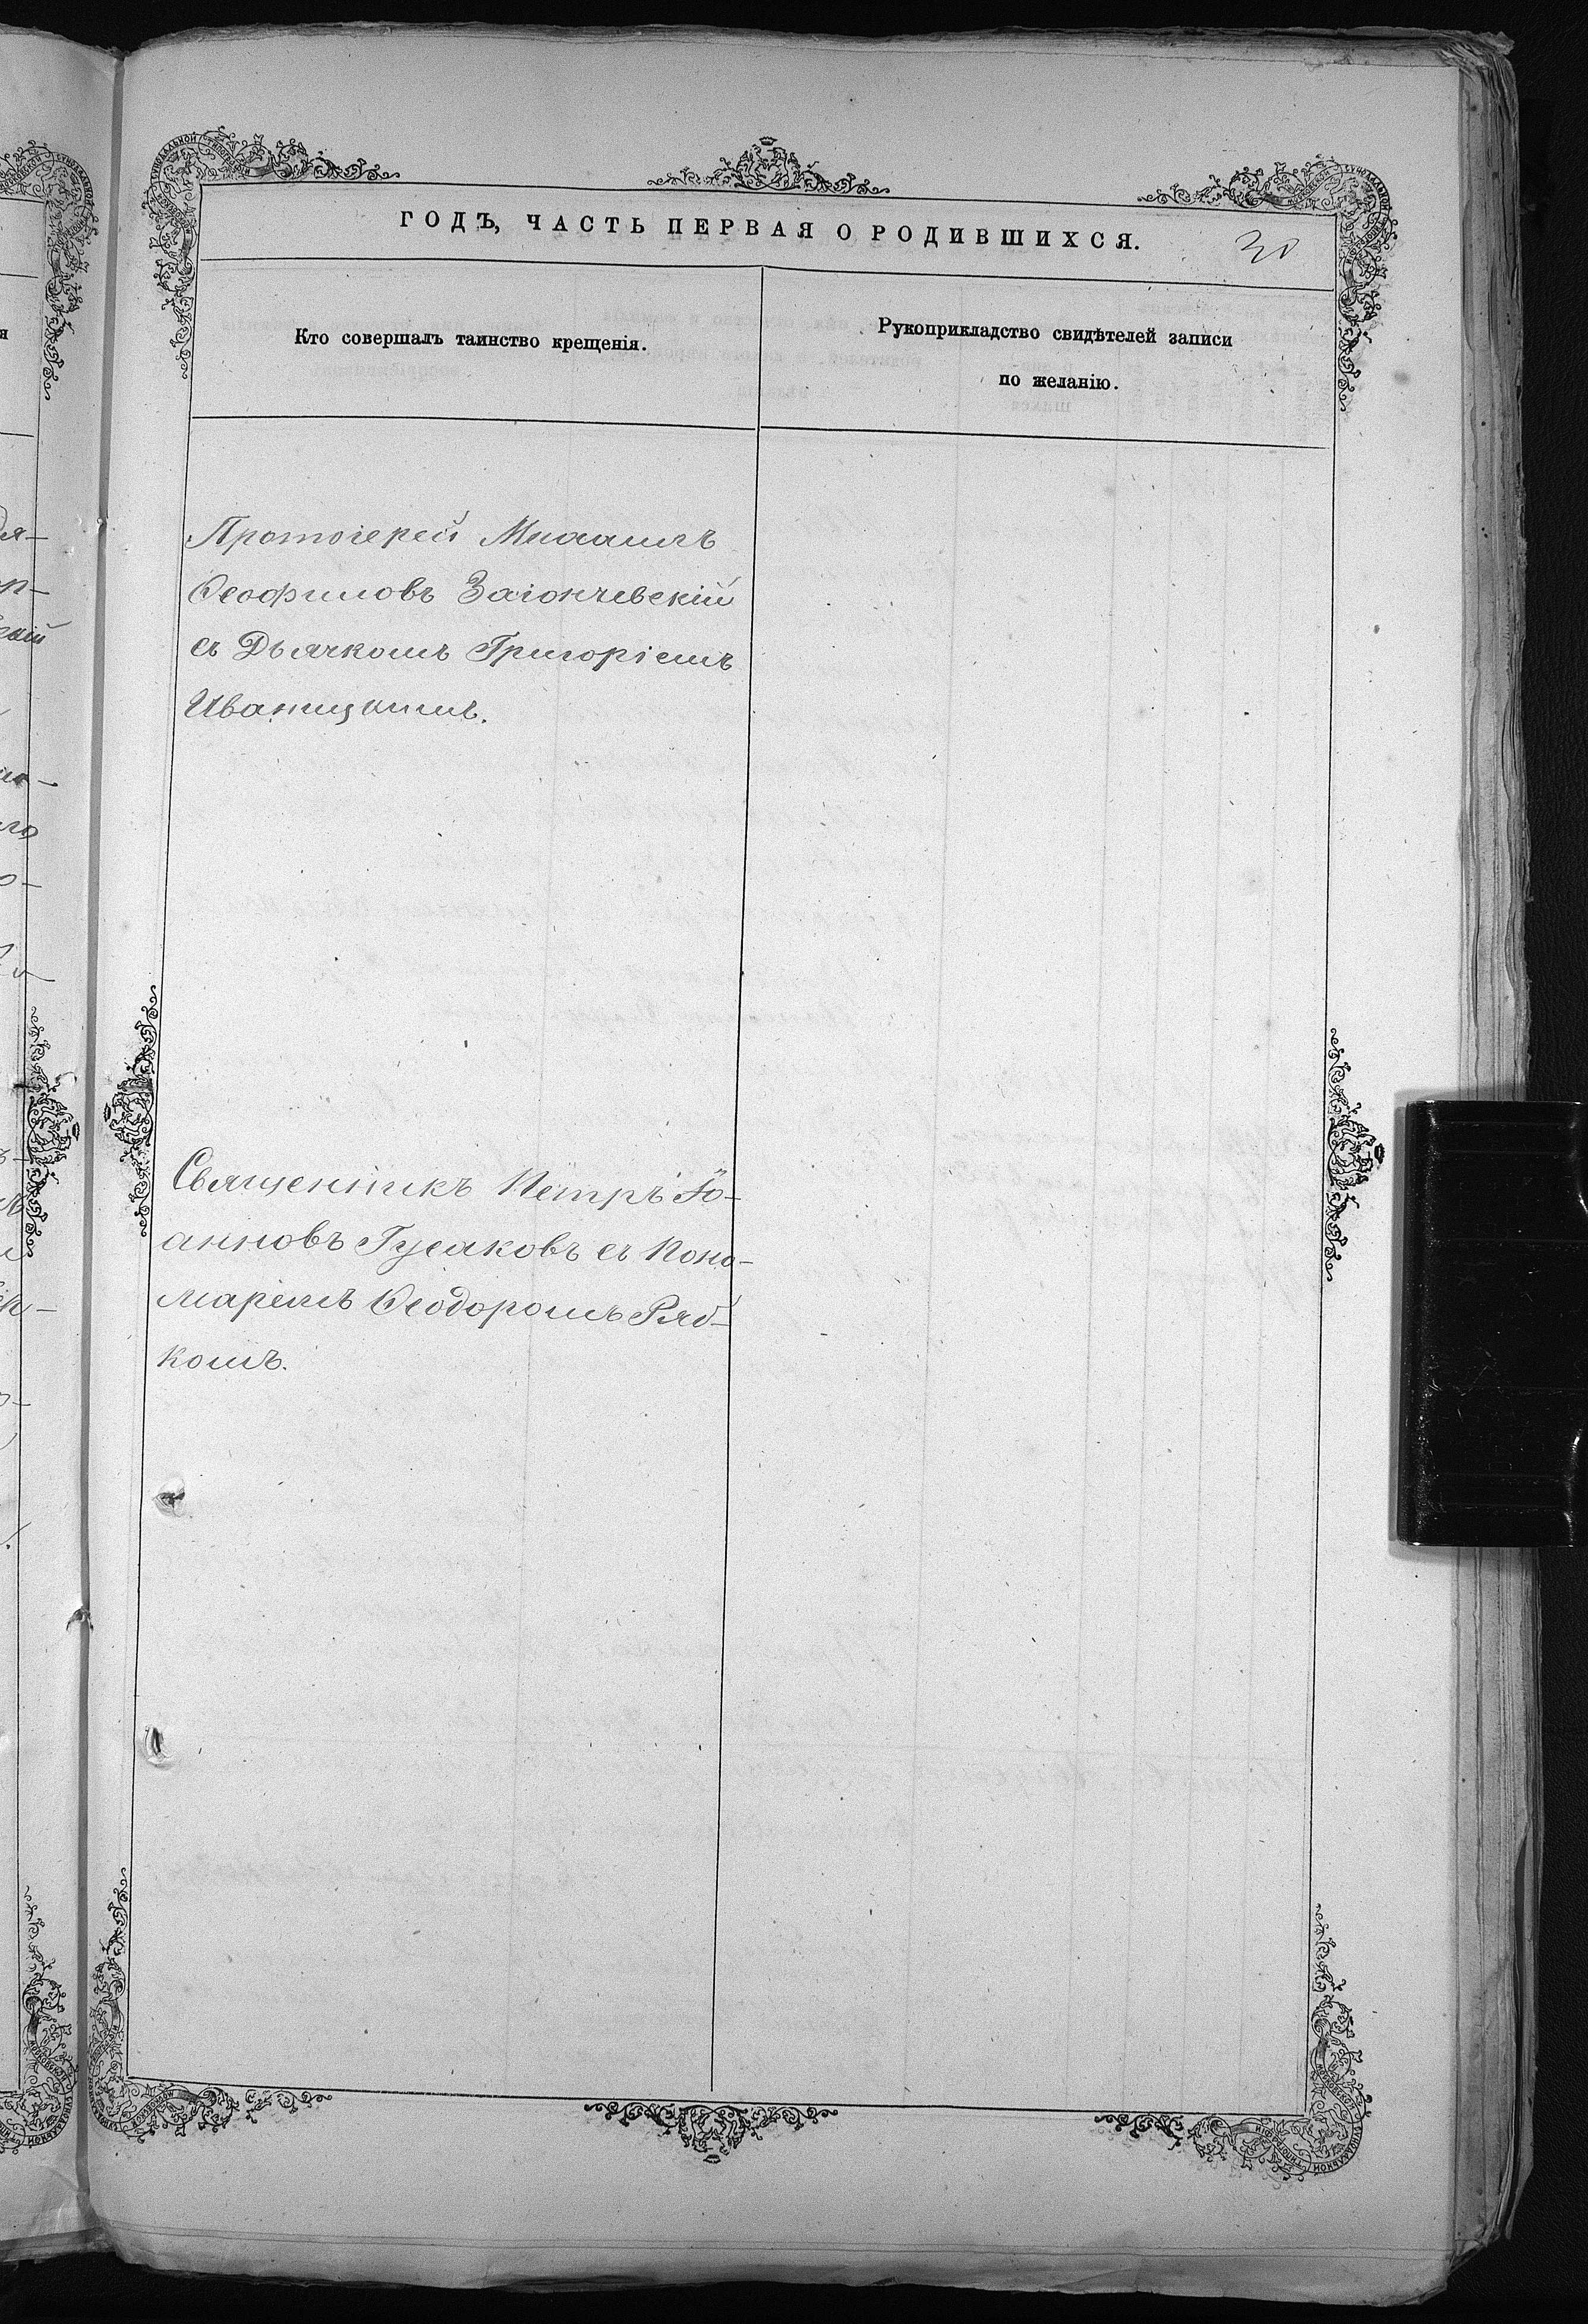 ГОДЪ, ЧАСТЬ ПЕРВАЯ О РОДИВШИХСЯ.
30
Кто совершалъ таинство крещенія.
Рукоприкладство свидѣтелей записи
по желанію.
Протоіерей Михаилъ
Ѳеофиловъ Заіончевскій
съ Дьячкомъ Григоріемъ
Иваницкимъ.
Священникъ Петръ Іо-
анновъ Гусаковъ съ Поно-
маремъ Ѳеодоромъ Ряб-
комъ.